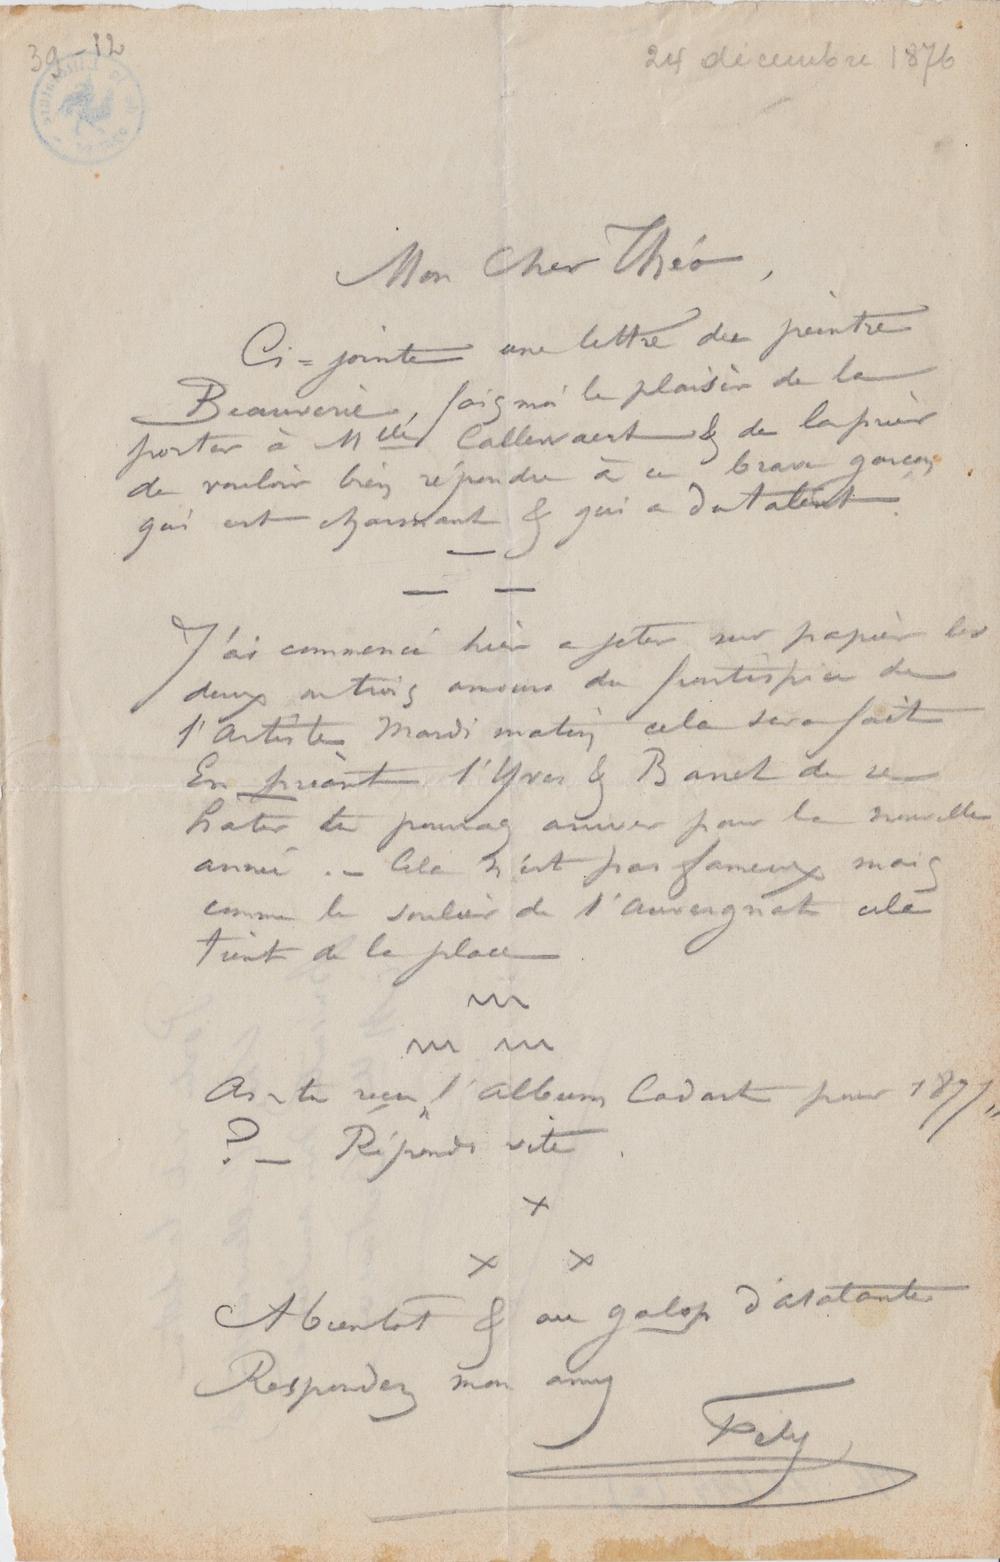 39-12
24 décembre 1876
Mon Cher Théo,
Ci=jointe une lettre du peintre
Beauverie, fais moi le plaisir de la
porter à Mlle Callewaert & de la prier
de vouloir bien répondre à ce brave garçon
qui est charmant & qui a du talent.
J'ai commencé hier a jeter sur papier les
deux ou trois amours du frontispice de
l'Artiste Mardi matin cela sera fait
En priant l'Yves & Barret de se
hâter tu pourras arriver pour la nouvelle
année. – Cela n'est pas fameux mais
comme le soulier de l'auvergnat cela
tient de la place
As-tu recu l'album Cadart pour 1877
? – Réponds vite.
A bientot & au galop
Respondez mon amy
Fély